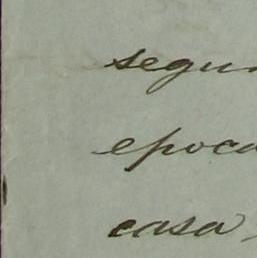 segun
epoca
casa